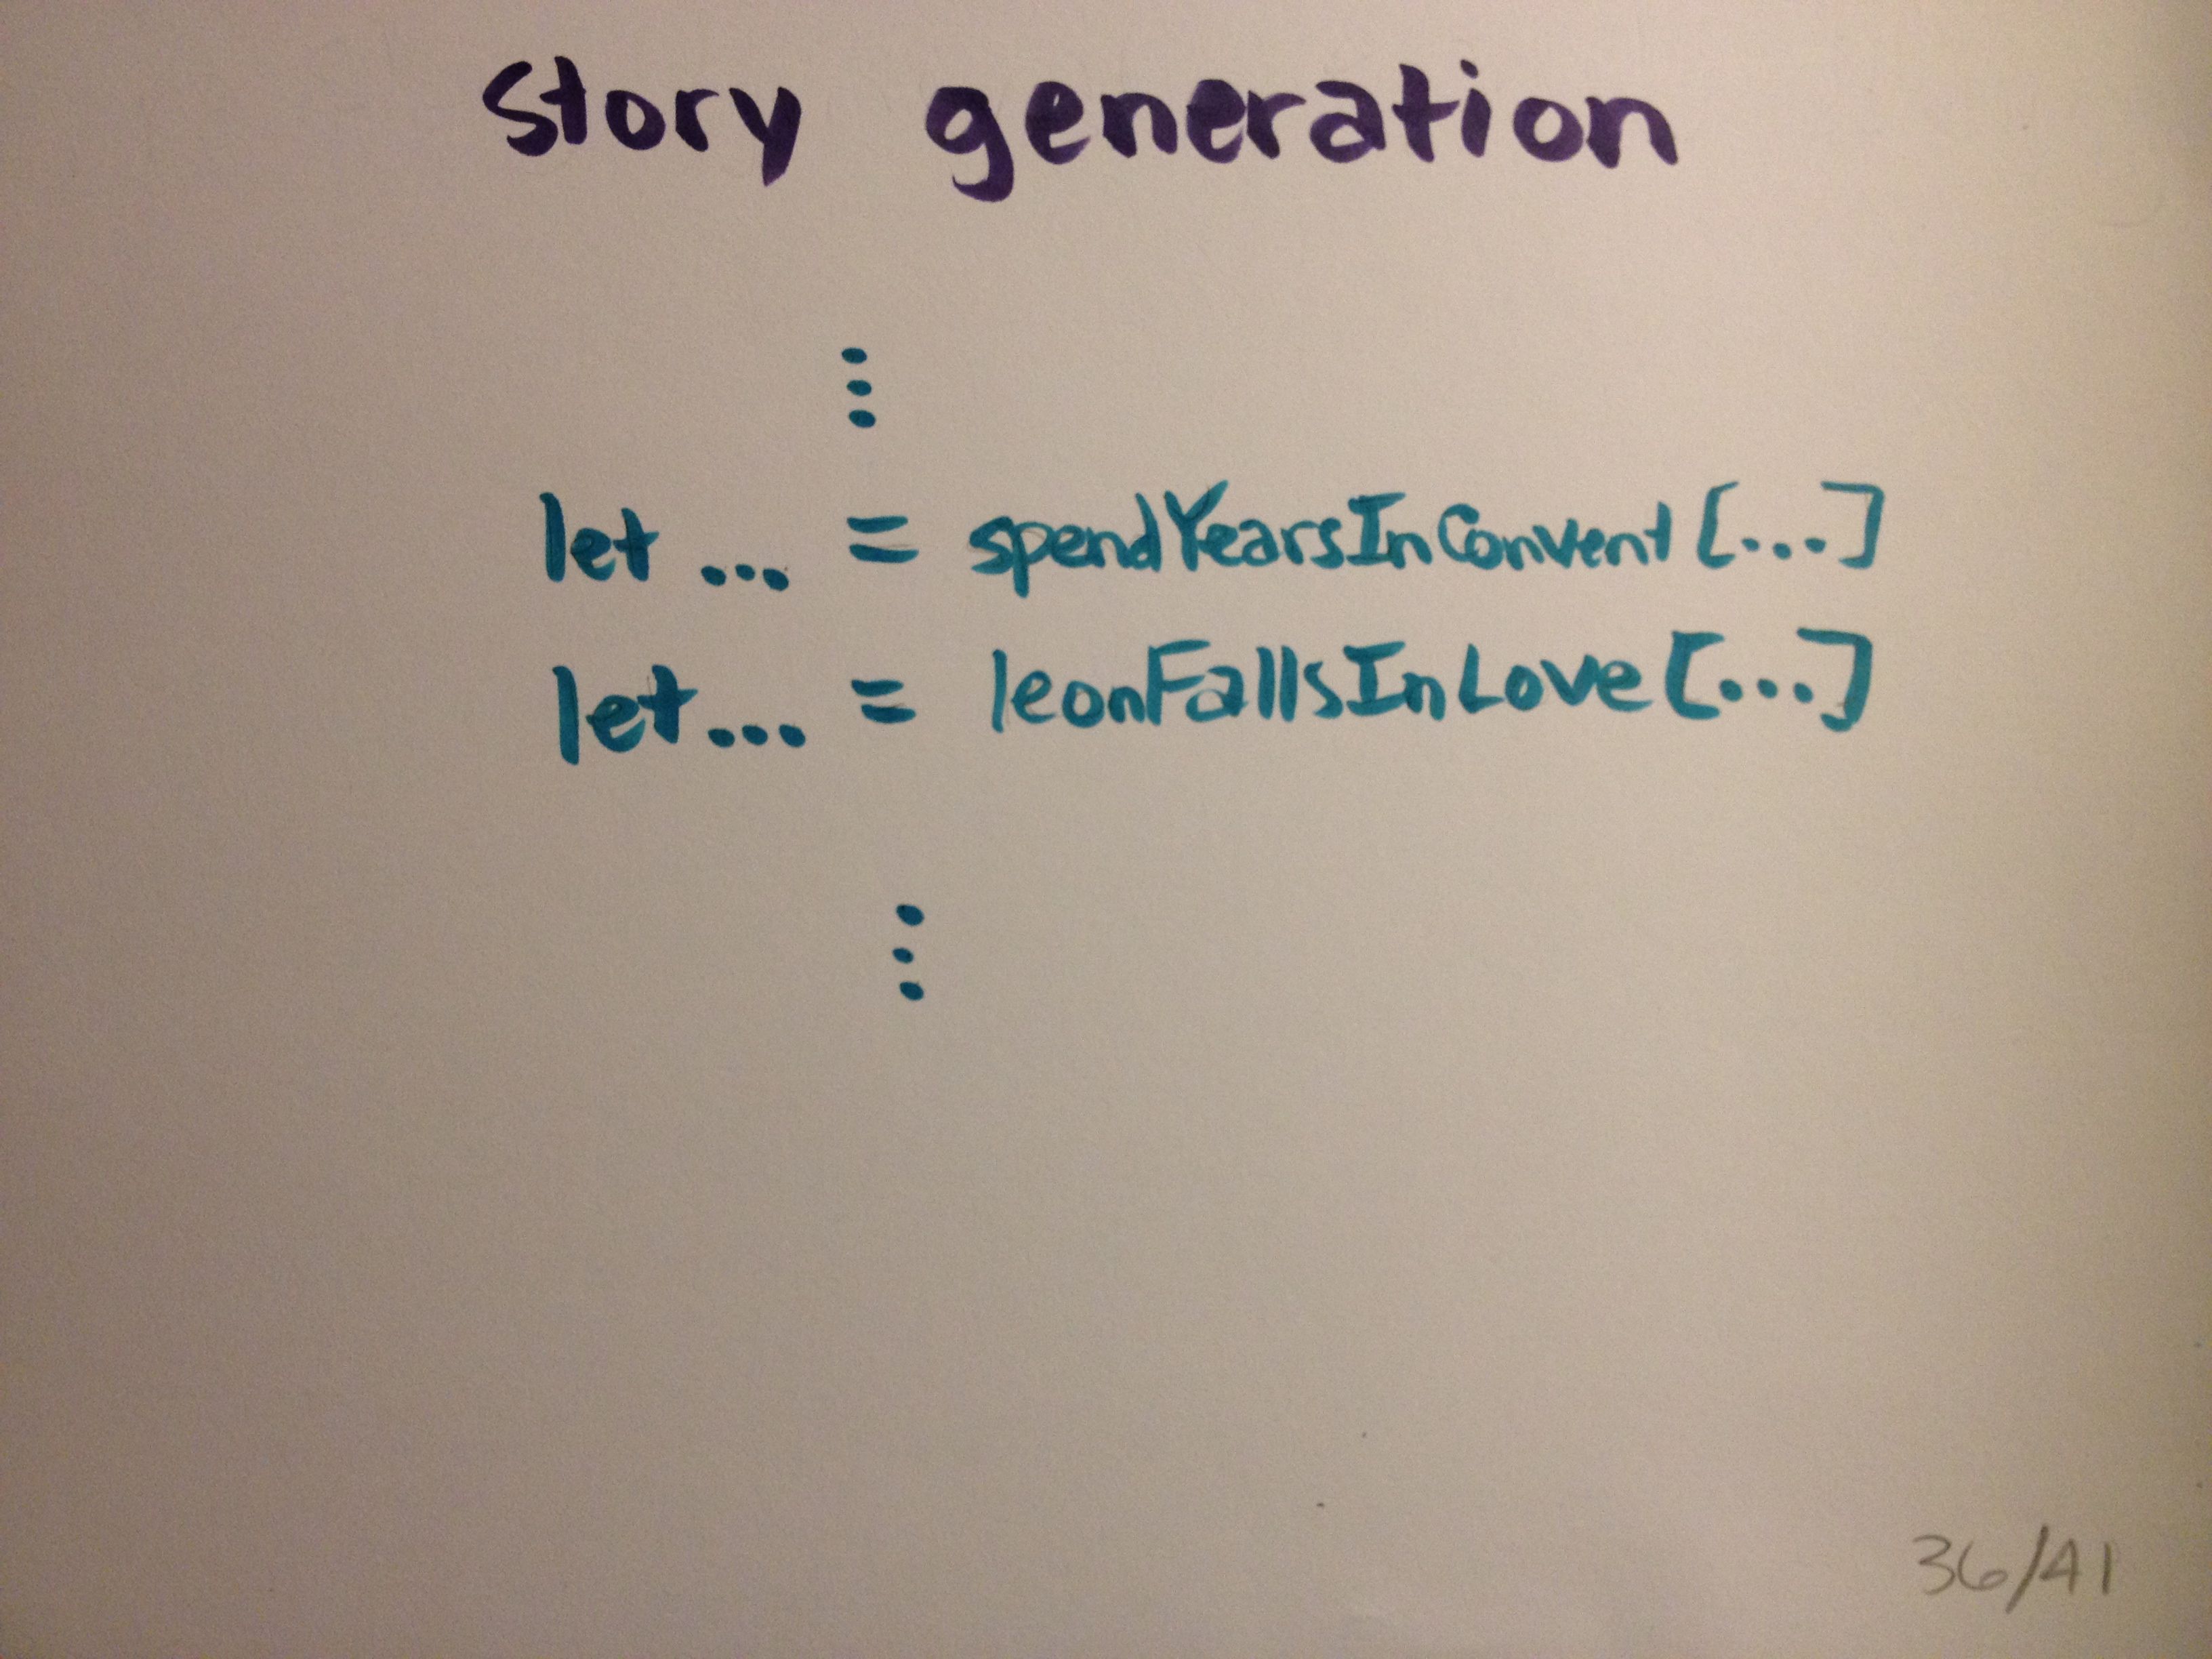 Story generation
⋮
let ... = spendYearsInConvent [...]
let... = leonFallsInLove [...]
⋮
36/41